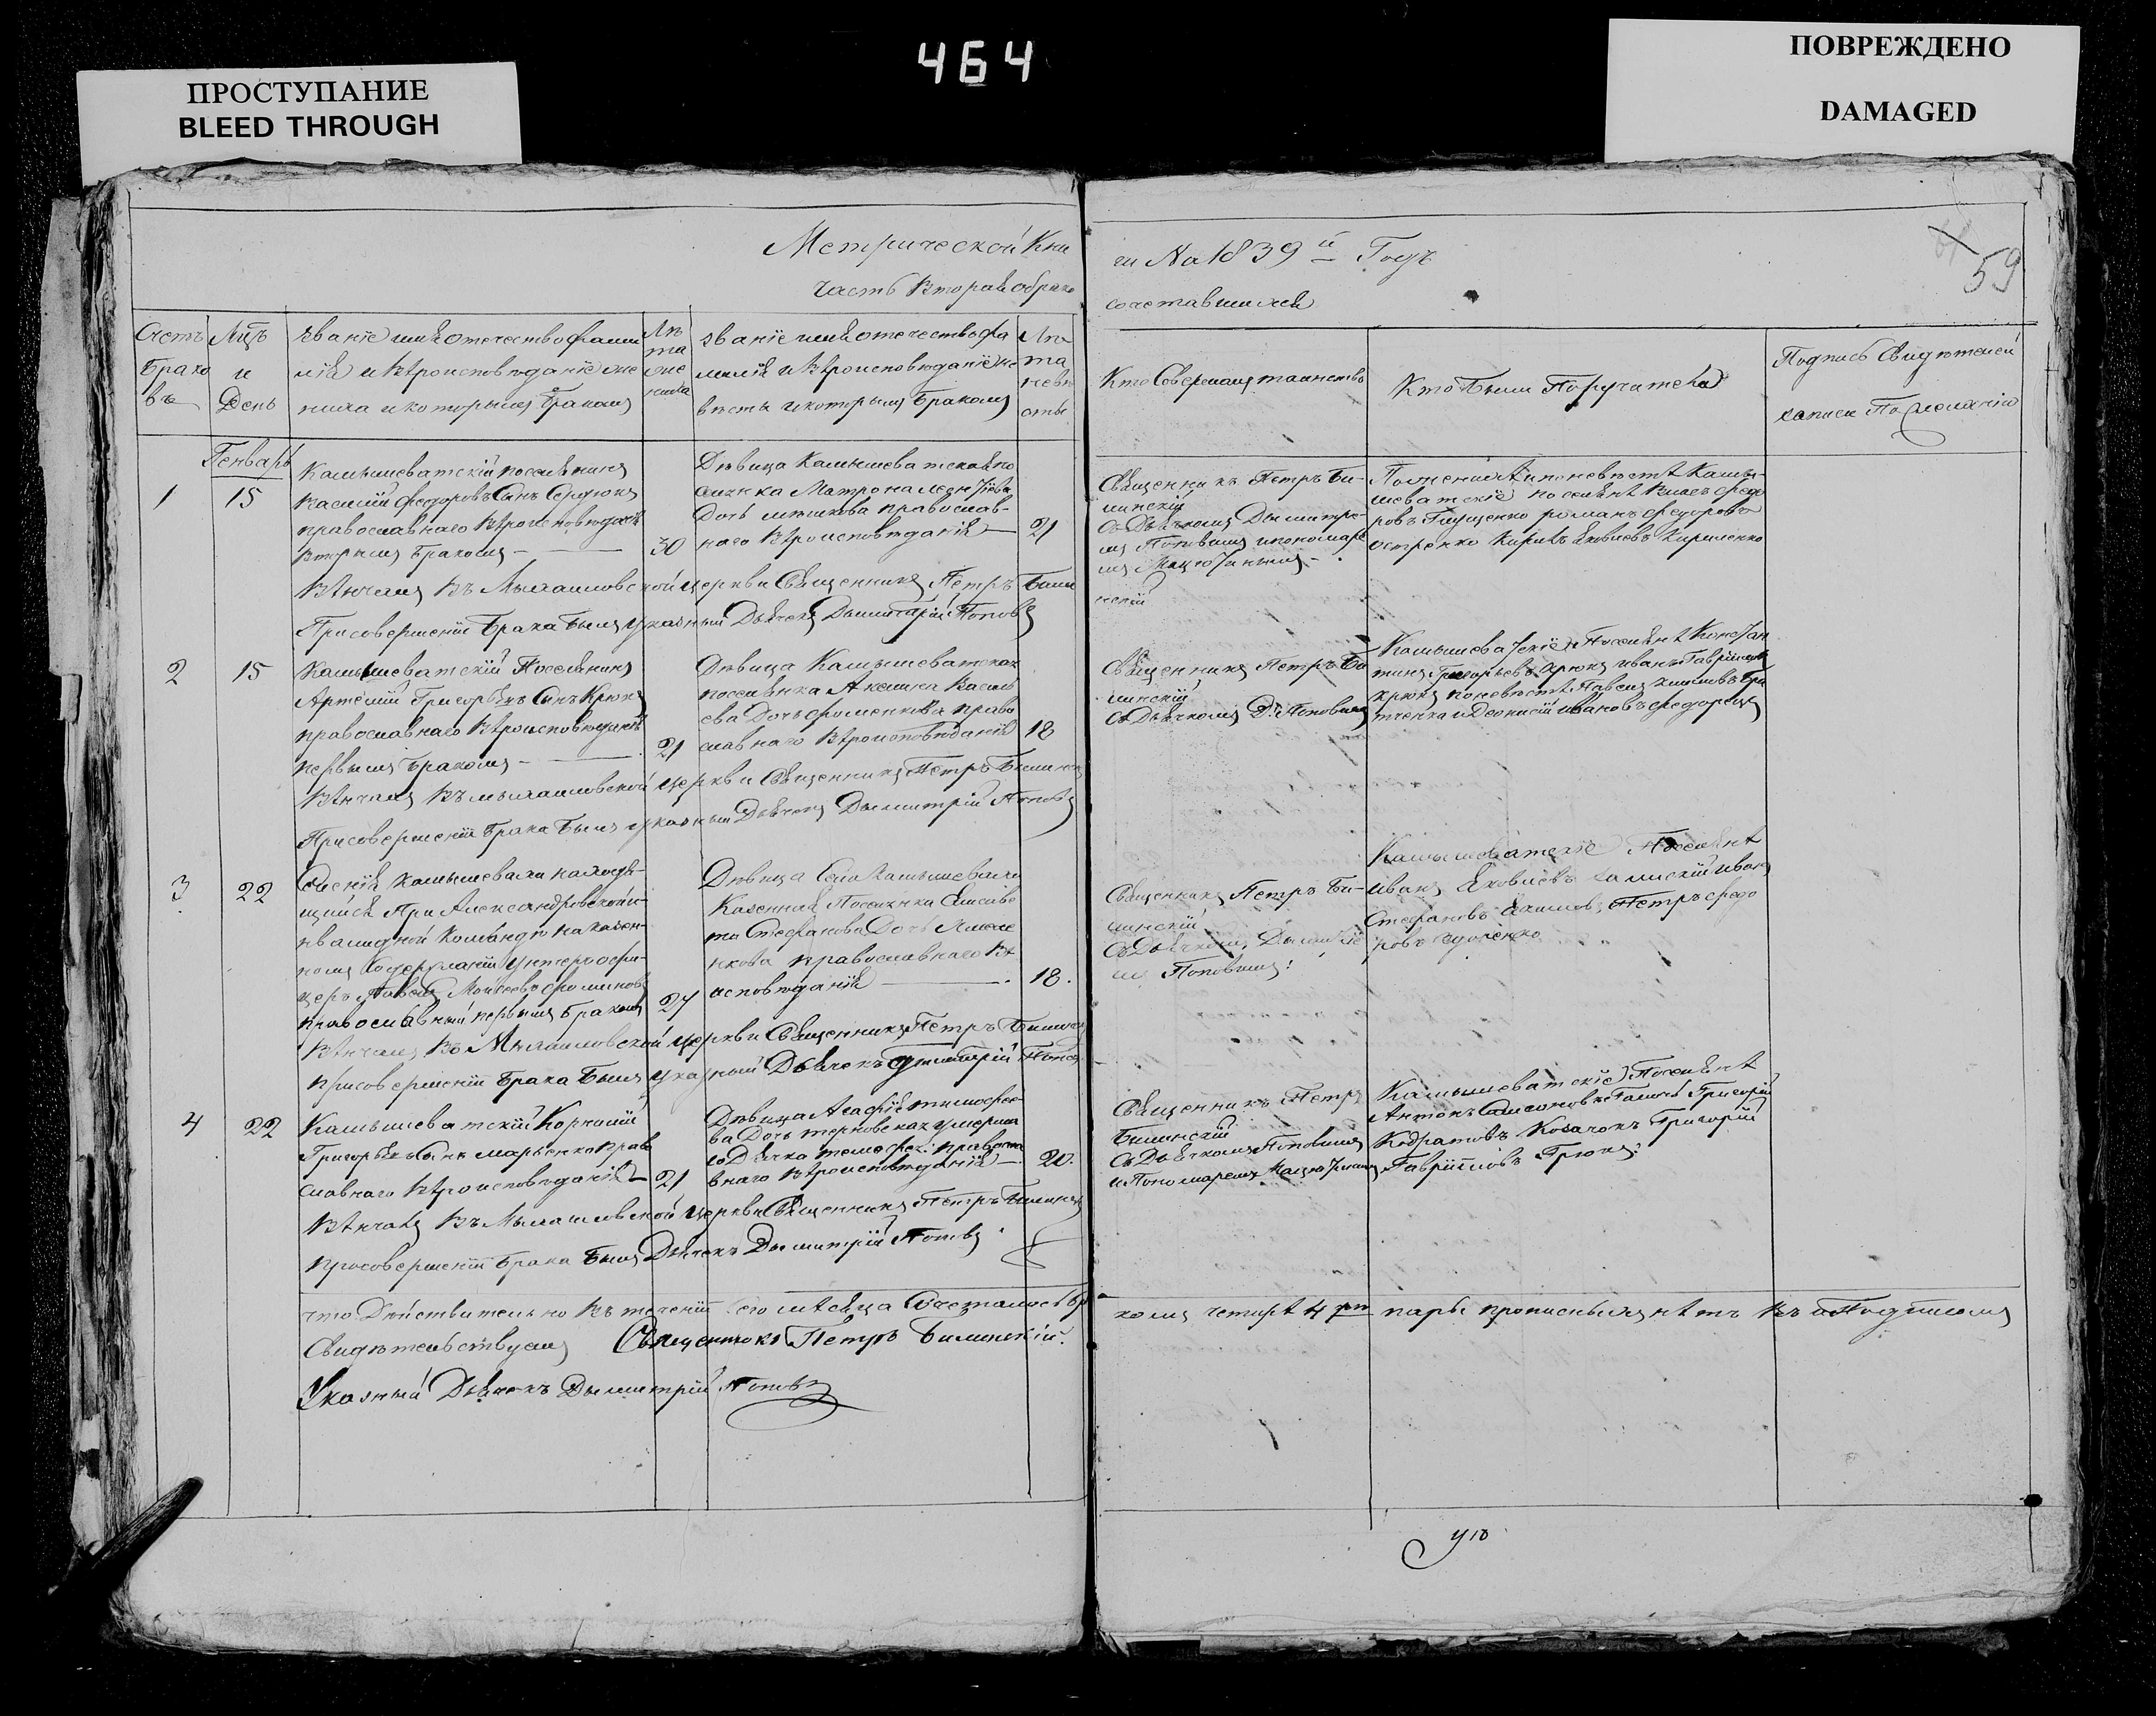 464
ПРОСТУПАНИЕ
BLEED THROUGH
ПОВРЕЖДЕНО
DAMAGED
59
Метрической Кни
ги На 1839й Годъ
часть Вторая обрако
сочетавшихся
Счетъ Брако въ
Мцъ и День
званіе имя отечество фами
лія и вѣроисповѣданіе же
ниха и которымъ Бракомъ
Лѣ та же ниха
званіе имя отечество фа
милія и вѣроисповѣданіе не
вѣсты и которымъ Бракомъ
Лѣ та невѣ сты
Кто Совершалъ таинство
Кто Были Поручатели
Подпись Свидѣтелей
записи По желанію
Генварь
1
15
Камышеватскій поселянинъ
Василій Федоровъ Сынъ Сердюкъ
православнаго вѣроисповѣданія
вторымъ Бракомъ
30
Дѣвица Камышеватская по
селянка Матрона
Дочь православ-
наго вѣроисповѣданія
21
Священникъ Петръ Би-
линскій
съ Дьячкомъ Дымитрі-
мъ Поповымъ и пономаре
мъ
По женихѣ и по невѣстѣ Камы-
шеватскіе поселянѣ Власъ Федо
ровъ Глущенко романъ федоровъ
Кирилъ Яковлевъ Кириленко
Вѣнчалъ Въ Мыхаиловской церкви Священникъ Петръ Били
нскій
При совершеніи Брака Былъ указный Дьячекъ Дымитрій Поповъ
2
15
Камышеватскій Поселянинъ
Артемій Григорьевъ Сынъ Крюкъ
православнаго вѣроисповѣданія
первымъ Бракомъ
21
Дѣвица Камышеватская
поселянка Акелина Василь
ева Дочь фоменкова право
славнаго вѣроисповѣданія
18
Священникъ Петръ Би
линскій
съ Дьячкомъ Д. Поповымъ
Камышеватскіе Поселянѣ Констан
тинъ Григорьевъ Крюкъ иванъ Гавриловъ
Крюкъ по невѣстѣ Павелъ
и Деонисій ивановъ федорецъ
Вѣнчалъ Въ мыхаиловской церкви Священникъ Петръ Билинск
При совершеніи Брака Былъ указный Дьячекъ Дымитрій Поповъ
3
22
Селенія Камышевахи находя-
щійся При Александровской и-
нвалидной Командѣ на казен-
номъ Содержаніи унтеръ офи-
церъ Павелъ Моисеевъ фоминовъ
православный первымъ Бракомъ
27
Дѣвица Села Камышевахи
Казенная Поселянка Елисаве
та Стефанова Дочь
нкова православнаго Вѣ
исповѣданія
18.
Священникъ Петръ Би-
линскій
съ Дьячкомъ Дымитріе
мъ Поповымъ:
Камышеватскіе Поселянѣ
Иванъ Яковлевъ иванъ
Стефановъ Якимов, Петръ федо
ровъ
Вѣнчалъ Въ Мыхаиловской церкви Священникъ Петръ Билинск
При совершеніи Брака Былъ указный Дьячекъ Дымитрій Попов
4
22
Камышеватскій Корнилій
Григорьевъ Сынъ марьенко право
славнаго вѣроисповѣданія
21
Дѣвица Агафія тимофее
ва Дочь терновская умерша
го Дьячка тимофея: правосла
внаго вѣроисповѣданія
20.
Священникъ Петръ
Билинскій
съ Дьячкомъ Поповымъ
и Пономаремъ
Камышеватскіе Поселянѣ
Антонъ Григорій
Кодратовъ Козачокъ Григорій
Гавриловъ Крюкъ:
Вѣнчалъ Въ Мыхаиловской церкви Священникъ Петръ Билинск
При совершеніи Брака Былъ Дьячекъ Дымитрій Поповъ
что Дѣйствительно Въ теченіи Сего мѣсяца Сочеталось Бр
комъ четырѣ 4 ри пары прописныхъ нѣтъ Въ Подписомъ
Свидѣтельствуемъ Священникъ Петръ Билинскій.
Указный Дьячекъ Дымитрій Поповъ